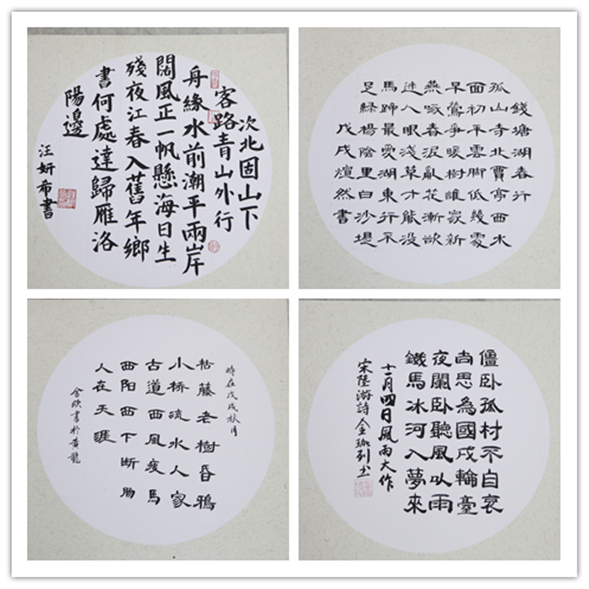 次北固山下
客路青山外行
舟緣水前潮平兩岸
闊風正一帆懸海日生
殘夜江春入舊年鄉
書何處達歸雁洛
陽邊
汪妍希書
錢塘湖春行
孤山寺北賈亭西水
面初平雲腳低幾處
早鶯爭暖樹誰家新
燕啄春泥亂花漸欲
迷人眼淺草才能沒
馬蹄最愛湖東行不
足綠楊陰里白沙堤
戊戌煊然書
時在戊戌秋月
枯藤老樹昏鴉
小桥流水人家
古道西風瘦馬
西阳西下断肠
人在天涯
書於黄龍
僵卧孤村不自哀
尚思為國戍輪臺
夜闌卧聽風吹雨
鐵馬冰河入夢來
十一月四日風雨大作
宋陸游詩金珈